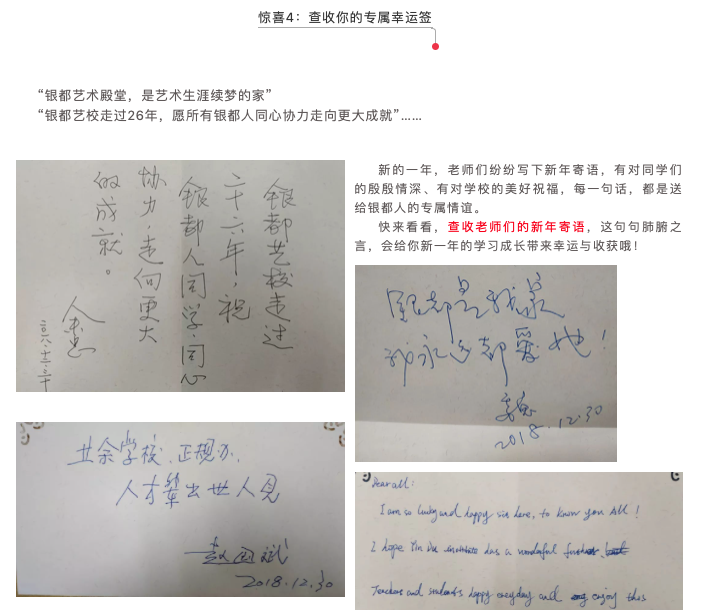 惊喜4：查收你的专属幸运签
“银都艺术殿堂，是艺术生涯续梦的家”
“银都艺校走过26年，愿所有银都人同心协力走向更大成就”……
银都艺校走过
二十六年，祝
银都人同学，同心
协力，走向更大
的成就。
二〇一八．十二．三十
新的一年，老师们纷纷写下新年寄语，有对同学们
的殷殷情深、有对学校的美好祝福，每一句话，都是送
给银都人的专属情谊。
快来看看，查收老师们的新年寄语，这句句肺腑之
言，会给你新一年的学习成长带来幸运与收获哦！
银都是我家
我永远都爱她！
2018.12.30
业余学校，正规办，
人才辈出世人见
赵国斌
2018.12.30
Dear all:
I am so lucky and happy in here, to know you All!
I hope has a wonderful
Teachers and students happy everyday and enjoy this